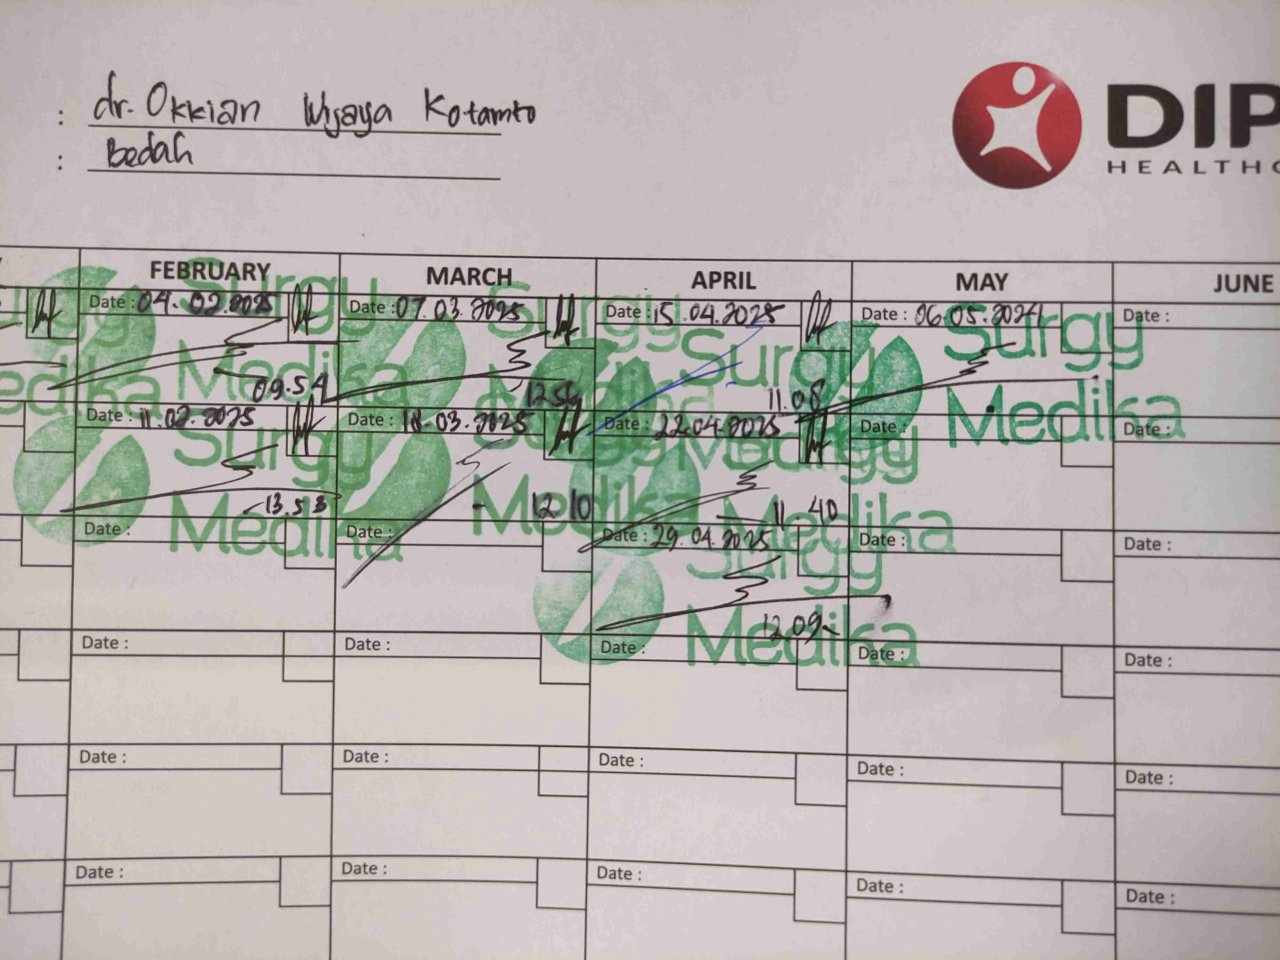 : dr. Okkian Wijaya Kotamto
: Bedah
DIP
HEALTHC
FEBRUARY MARCH APRIL MAY JUNE
Date : 04.02.2025 Date : 07.03.2025 Date : 15.04.2025 Date : 06.05.2024 Date :
Surgy Surgy Surgy Surgy
Medika Medika Medika
09.54 11.08
Date : 11.02.2025 Date : 18.03.2025 Date : 22.04.2025 Date : Date :
Surgy
Medika Medika Medika
13.53 12 10 11 40
Date : Date : Date : 29.04.2025 Date : Date :
Surgy
Medika
12.09
Date : Date : Date : Date : Date :
Date : Date : Date : Date : Date :
Date : Date : Date : Date : Date :